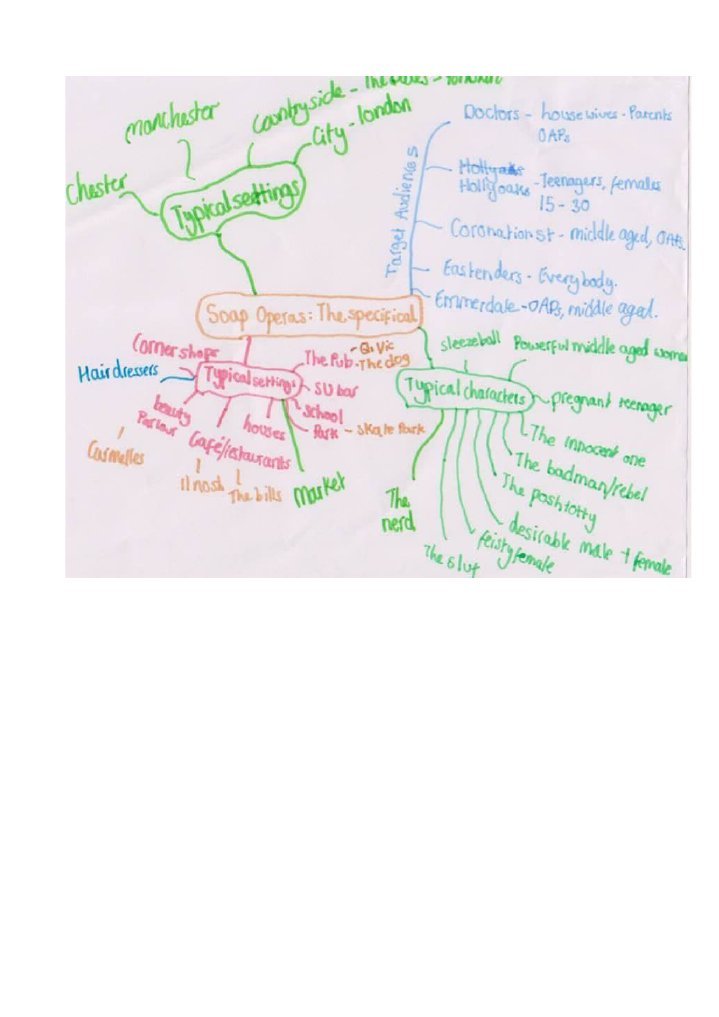 Manchester
Countryside - The Dales -
City - london
Chester
Typical settings
Doctors - housewives - Parents
OAPs
Hollyoaks
Hollyoaks - Teenagers, females
15 - 30
Target Audiences
Coronation st - middle aged, OAPs.
Eastenders - Everybody.
Emmerdale - OAPs, middle aged.
Soap Operas: The specifical
Corner shops
Hairdressers
Typical settings
The Pub - Q. Vic
- The dog
SU bar
school
Park - Skate Park
beauty
Parlour
Café/restaurants
houses
Market
Carmelles
Il nosh
The bills
sleezeball
Powerful middle aged woman
Typical characters
pregnant teenager
The innocent one
The badman/rebel
The poshtotty
desirable male + female
feisty female
The slut
The
nerd